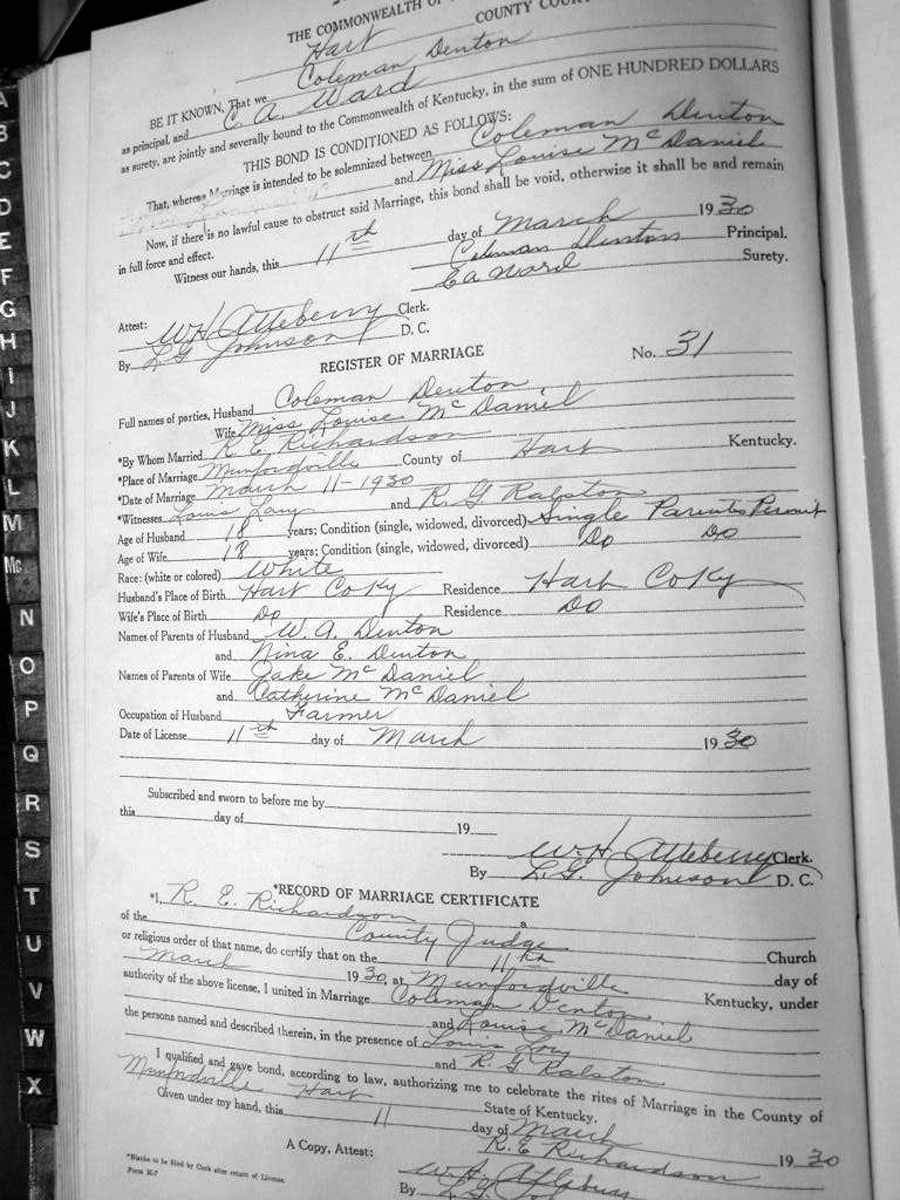 THE COMMONWEALTH OF
Hart COUNTY COURT
BE IT KNOWN, That we Coleman Denton
as principal, and C. A. Ward
as surety, are jointly and severally bound to the Commonwealth of Kentucky, in the sum of ONE HUNDRED DOLLARS
THIS BOND IS CONDITIONED AS FOLLOWS:
That, whereas Marriage is intended to be solemnized between Coleman Denton
and Miss Louise McDaniel
Now, if there is no lawful cause to obstruct said Marriage, this bond shall be void, otherwise it shall be and remain
in full force and effect.
Witness our hands, this 11th day of March 1930
Coleman Denton Principal.
C a Ward Surety.
Attest: W H Atteberry Clerk.
By L G Johnson D. C.
REGISTER OF MARRIAGE No. 31
Full names of parties, Husband Coleman Denton
Wife Miss Louise McDaniel
*By Whom Married R E Richardson
*Place of Marriage Munfordville County of Hart Kentucky.
*Date of Marriage March 11-1930
*Witnesses Louis and R. G Ralston
Age of Husband 18 years; Condition (single, widowed, divorced) Single Parents Permit
Age of Wife 18 years; Condition (single, widowed, divorced) Do Do
Race: (white or colored) White
Husband's Place of Birth Hart Co Ky Residence Hart Co Ky
Wife's Place of Birth Do Residence Do
Names of Parents of Husband W. A. Denton
and Nina E. Denton
Names of Parents of Wife Jake McDaniel
and Catherine McDaniel
Occupation of Husband Farmer
Date of License 11th day of March 1930
Subscribed and sworn to before me by
this day of 19
W. H. Atteberry Clerk.
By L. G. Johnson D. C.
*RECORD OF MARRIAGE CERTIFICATE
*I, R. E. Richardson a
of the County Judge Church
or religious order of that name, do certify that on the 11th day of
March 1930, at Munfordville Kentucky, under
authority of the above license, I united in Marriage Coleman Denton
and Louise McDaniel
the persons named and described therein, in the presence of Louis
and R. G Ralston
I qualified and gave bond, according to law, authorizing me to celebrate the rites of Marriage in the County of
Munfordville Hart State of Kentucky.
Given under my hand, this 11 day of March 1930
R. E. Richardson
A Copy, Attest: W H Atteberry
By L G
*Blanks to be filled by Clerk after return of License.
Form M-7
A
B
C
D
E
F
G
H
I
J
K
L
M
Mc
N
O
P
Q
R
S
T
U
V
W
X